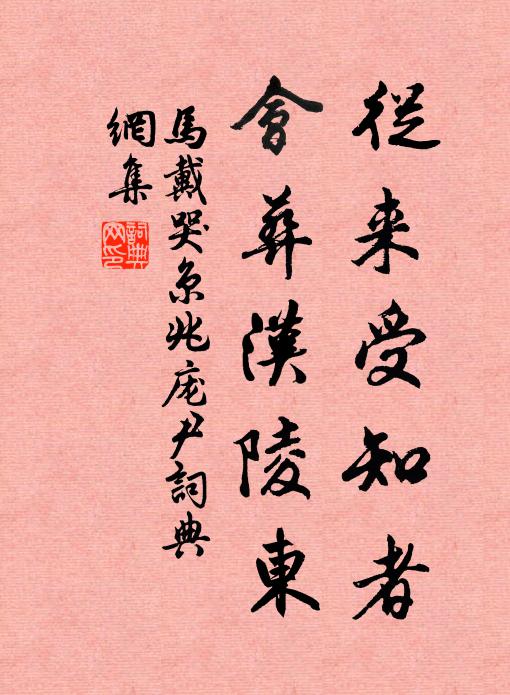 從来受知者
會葬漢陵東
馬戴哭京兆庞尹詞典
網集
詞典网印